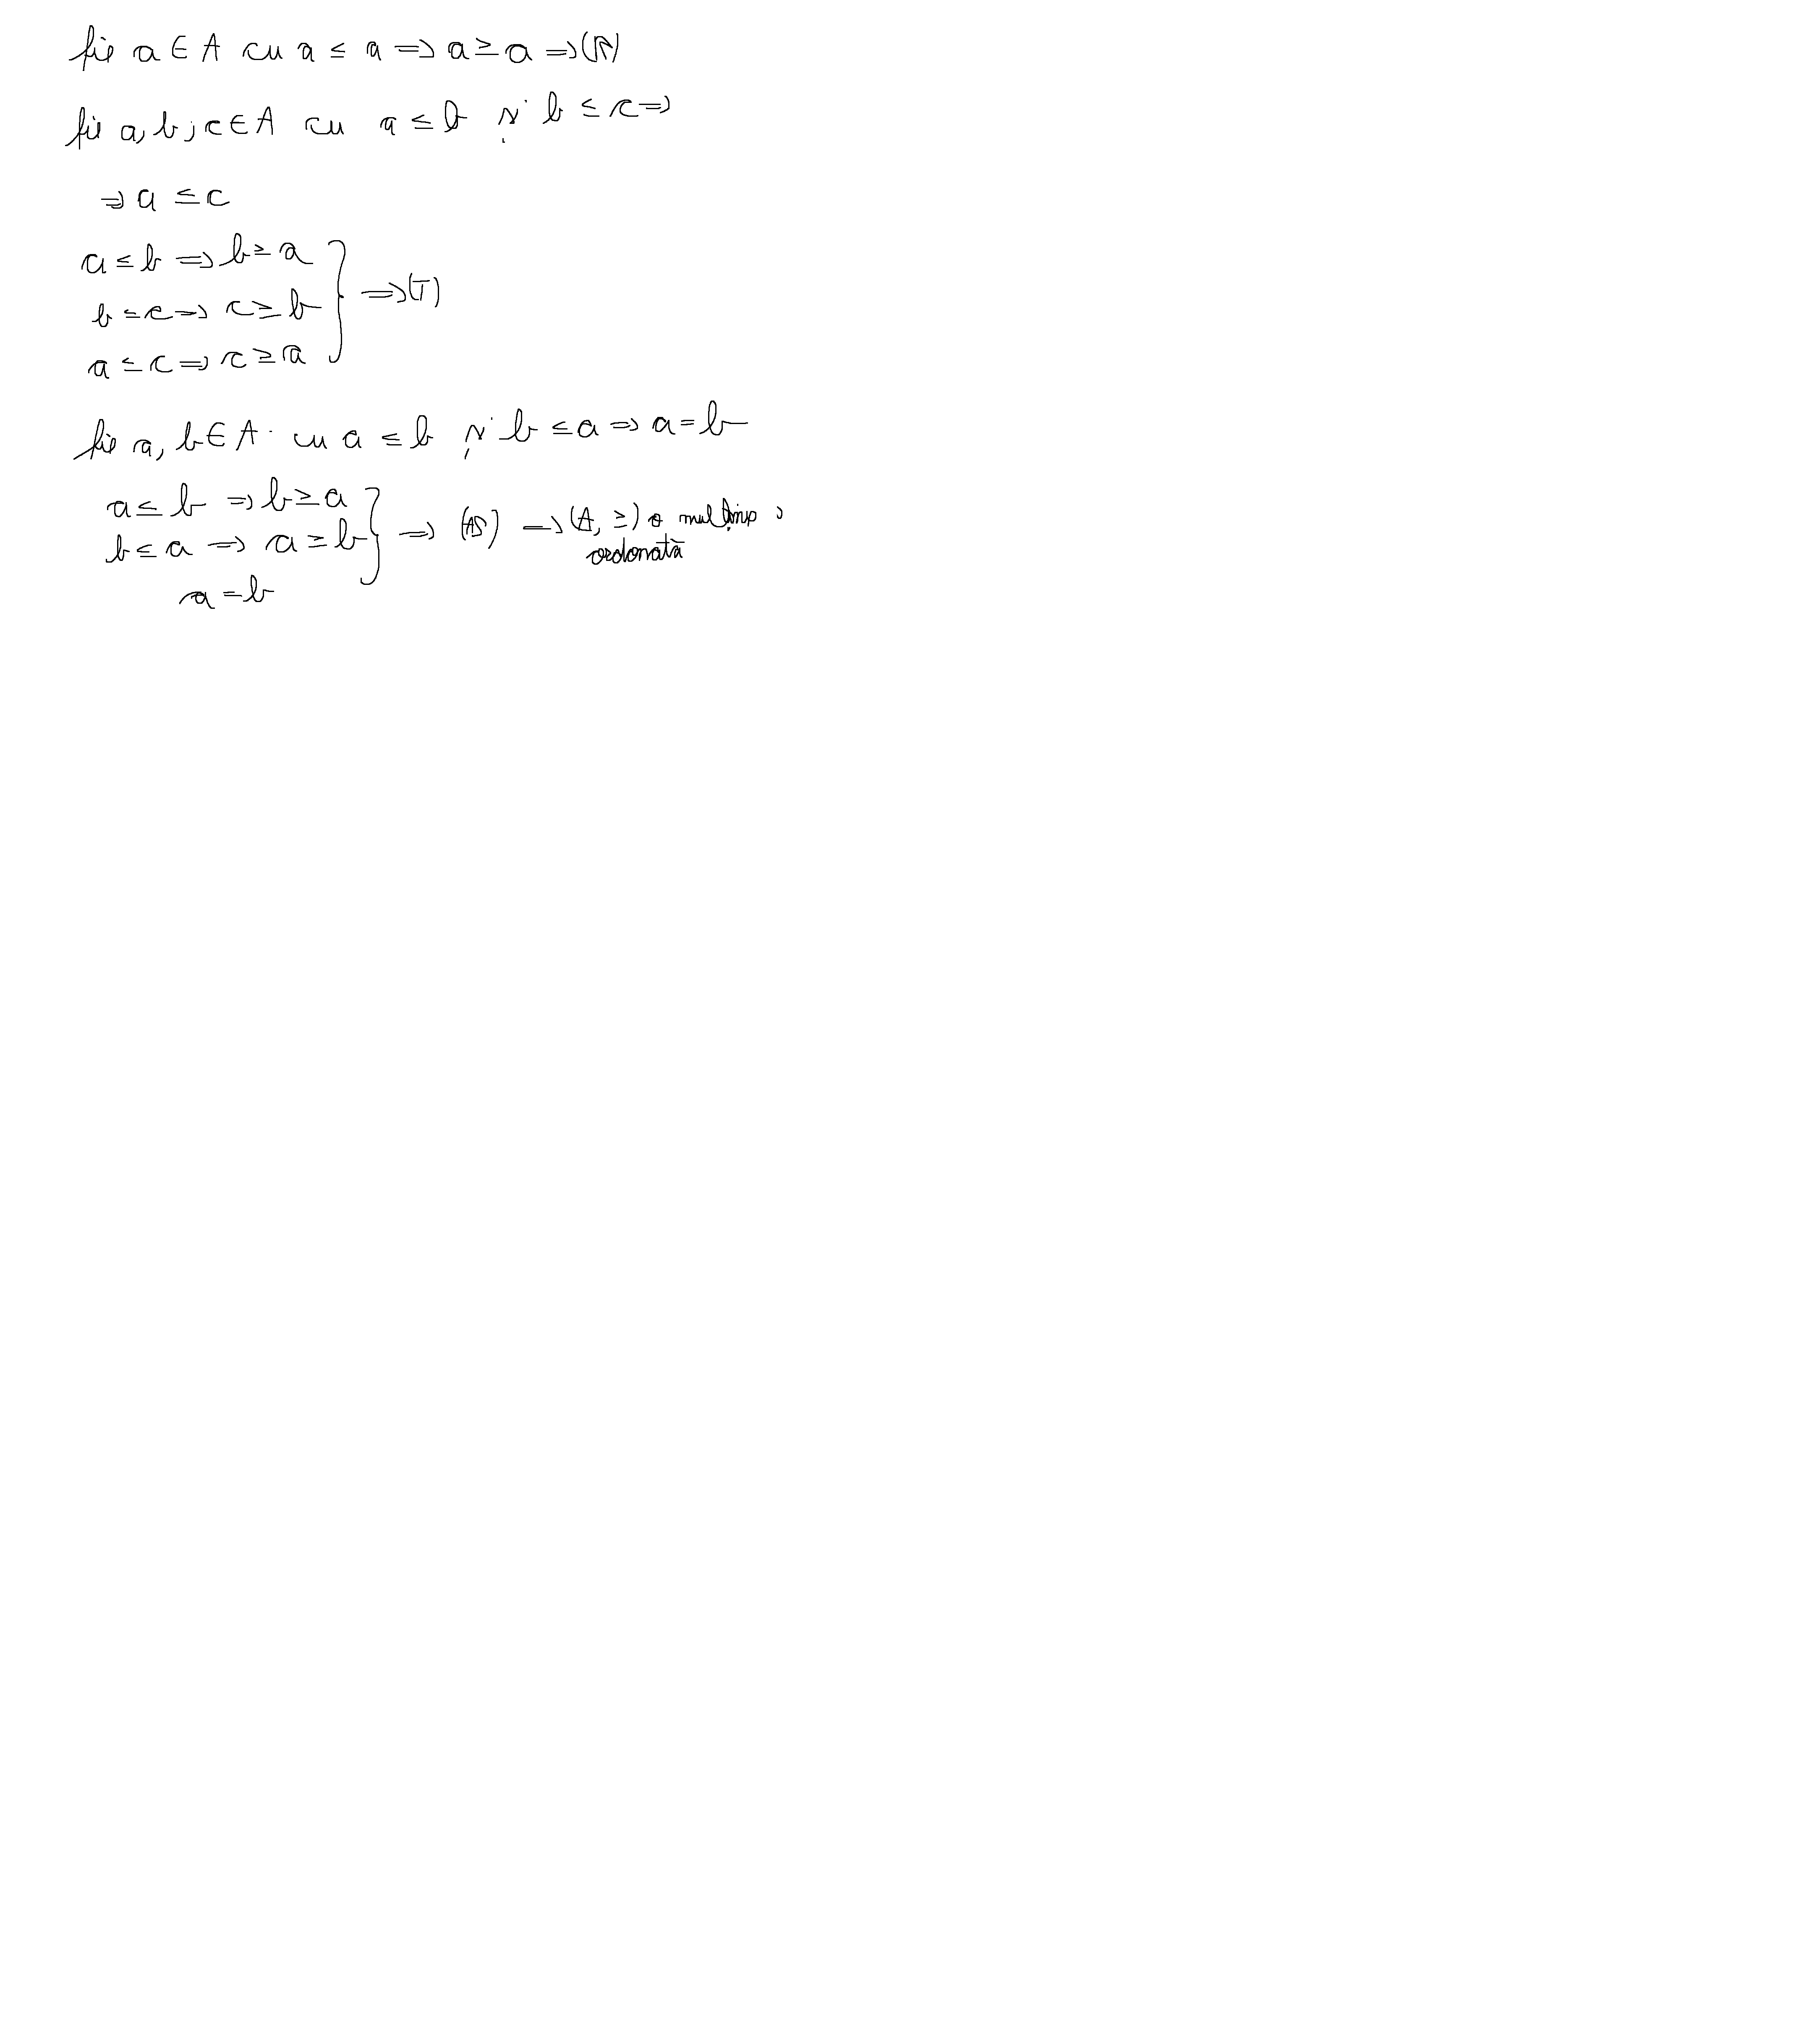 fie a ∈ A cu a ≤ a ⇒ a ≥ a ⇒ (R)
fie a, b, c ∈ A cu a ≤ b și b ≤ c ⇒
⇒ a ≤ c
a ≤ b ⇒ b ≥ a
b ≤ c ⇒ c ≥ b } ⇒ (T)
a ≤ c ⇒ c ≥ a
fie a, b ∈ A cu a ≤ b și b ≤ a ⇒ a = b
a ≤ b ⇒ b ≥ a
b ≤ a ⇒ a ≥ b } ⇒ (AS) ⇒ (A, ≥) o mulțime
ordonată
a = b